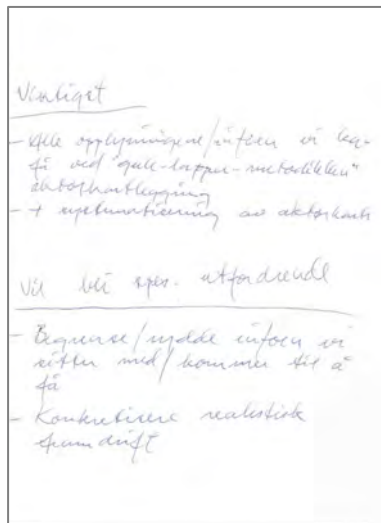 Viktigst
- Alle opplysningene/infoen vi kan
få ved "gule-lapper-metodikken"
aktørkartlegging
- + systematisering av aktørkart
Vil bli spes. utfordrende
- Begrense/rydde infoen vi
sitter med/kommer til å
få
- Konkretisere realistisk